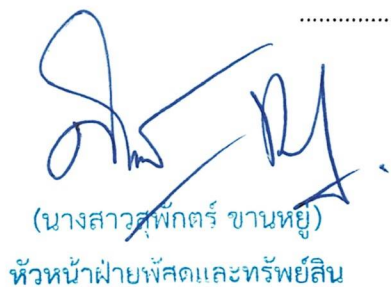 (นางสาวสุพักตร์ ขานหยู่)
หัวหน้าฝ่ายพัสดุและทรัพย์สิน